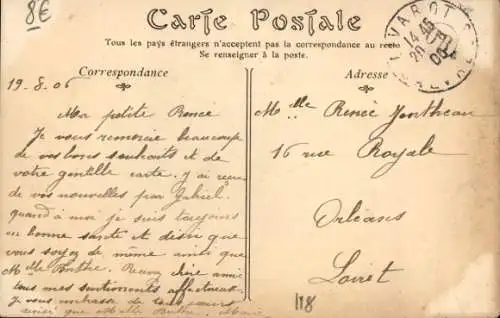 8€
Carte Postale
Tous les pays étrangers n'acceptent pas la correspondance au recto
Se renseigner à la poste.
Correspondance
Adresse
VAROT
14 45
20
19.8.06
Ma petite Renée
Je vous remercie beaucoup
de vos bons souhaits et de
votre gentille carte. J'ai reçu
de vos nouvelles par Gabriel.
quand à moi je suis toujours
en bonne santé et désire que
vous soyez de même ainsi que
Mlle Berthe. Recevez chère amie
tous mes sentiments affectueux.
Je vous embrasse de tout
ainsi que Mlle Berthe. Marie
Melle Renée
16 rue Royale
Orléans
Loiret
118